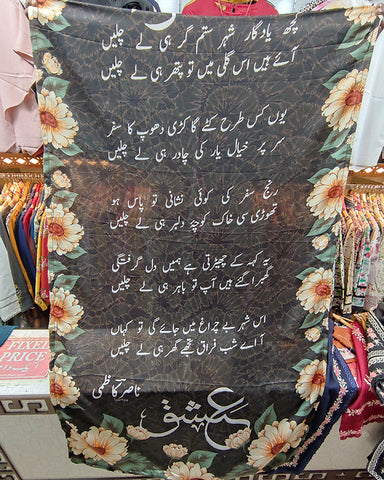 کچھ یادگارِ شہرِ ستم گر ہی لے چلیں
آئے ہیں اس گلی میں تو پتھر ہی لے چلیں
یوں کس طرح کٹے گا کڑی دھوپ کا سفر
سر پر خیالِ یار کی چادر ہی لے چلیں
رنجِ سفر کی کوئی نشانی تو پاس ہو
تھوڑی سی خاکِ کوچۂ دلبر ہی لے چلیں
یہ کہہ کے چھیڑتی ہے ہمیں دل گرفتگی
گھبرا گئے ہیں آپ تو باہر ہی لے چلیں
اس شہرِ بے چراغ میں جائے گی تو کہاں
آ اے شبِ فراق تجھے گھر ہی لے چلیں
ناصر کاظمی
عشق
FIXED
PRICE